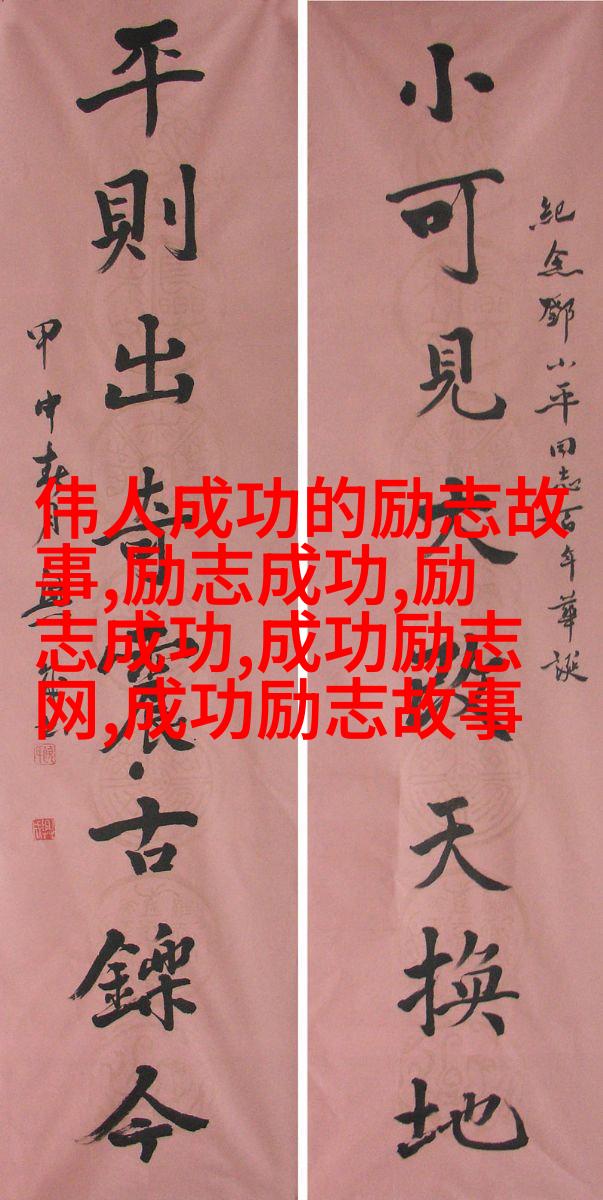 紀念鄧小平同志百年華誕
小可見大改天換地
平則出奇震古鑠今
甲申春月
伟人成功的励志故
事,励志成功,励
志成功,成功励志
网,成功励志故事